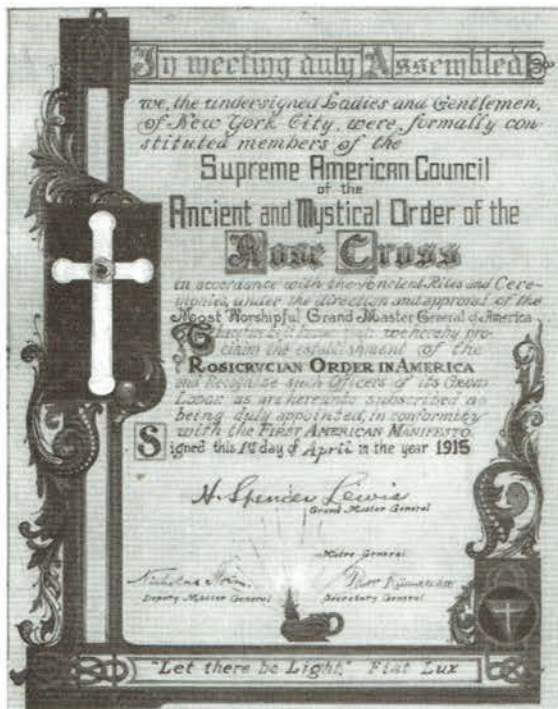 In meeting duly Assembled
we, the undersigned Ladies and Gentlemen,
of New York City, were formally con-
stituted members of the
Supreme American Council
of the
Ancient and Mystical Order of the
Rose Cross
in accordance with the Ancient Rites and Cere-
monies, under the direction and approval of the
Moost Worshipful Grand Master General of America
we hereby pro-
claim the establishment of the
ROSICRVCIAN ORDER IN AMERICA
and Recognize such Officers of its GRAND
LODGE as are hereunto subscribed as
being duly appointed, in conformity
with the FIRST AMERICAN MANIFESTO.
Signed this 1st day of April in the year 1915
H. Spencer Lewis
Grand Master General
Matre General
Nicholas
Deputy Master General
Thor
Secretary General
"Let there be Light," Fiat Lux